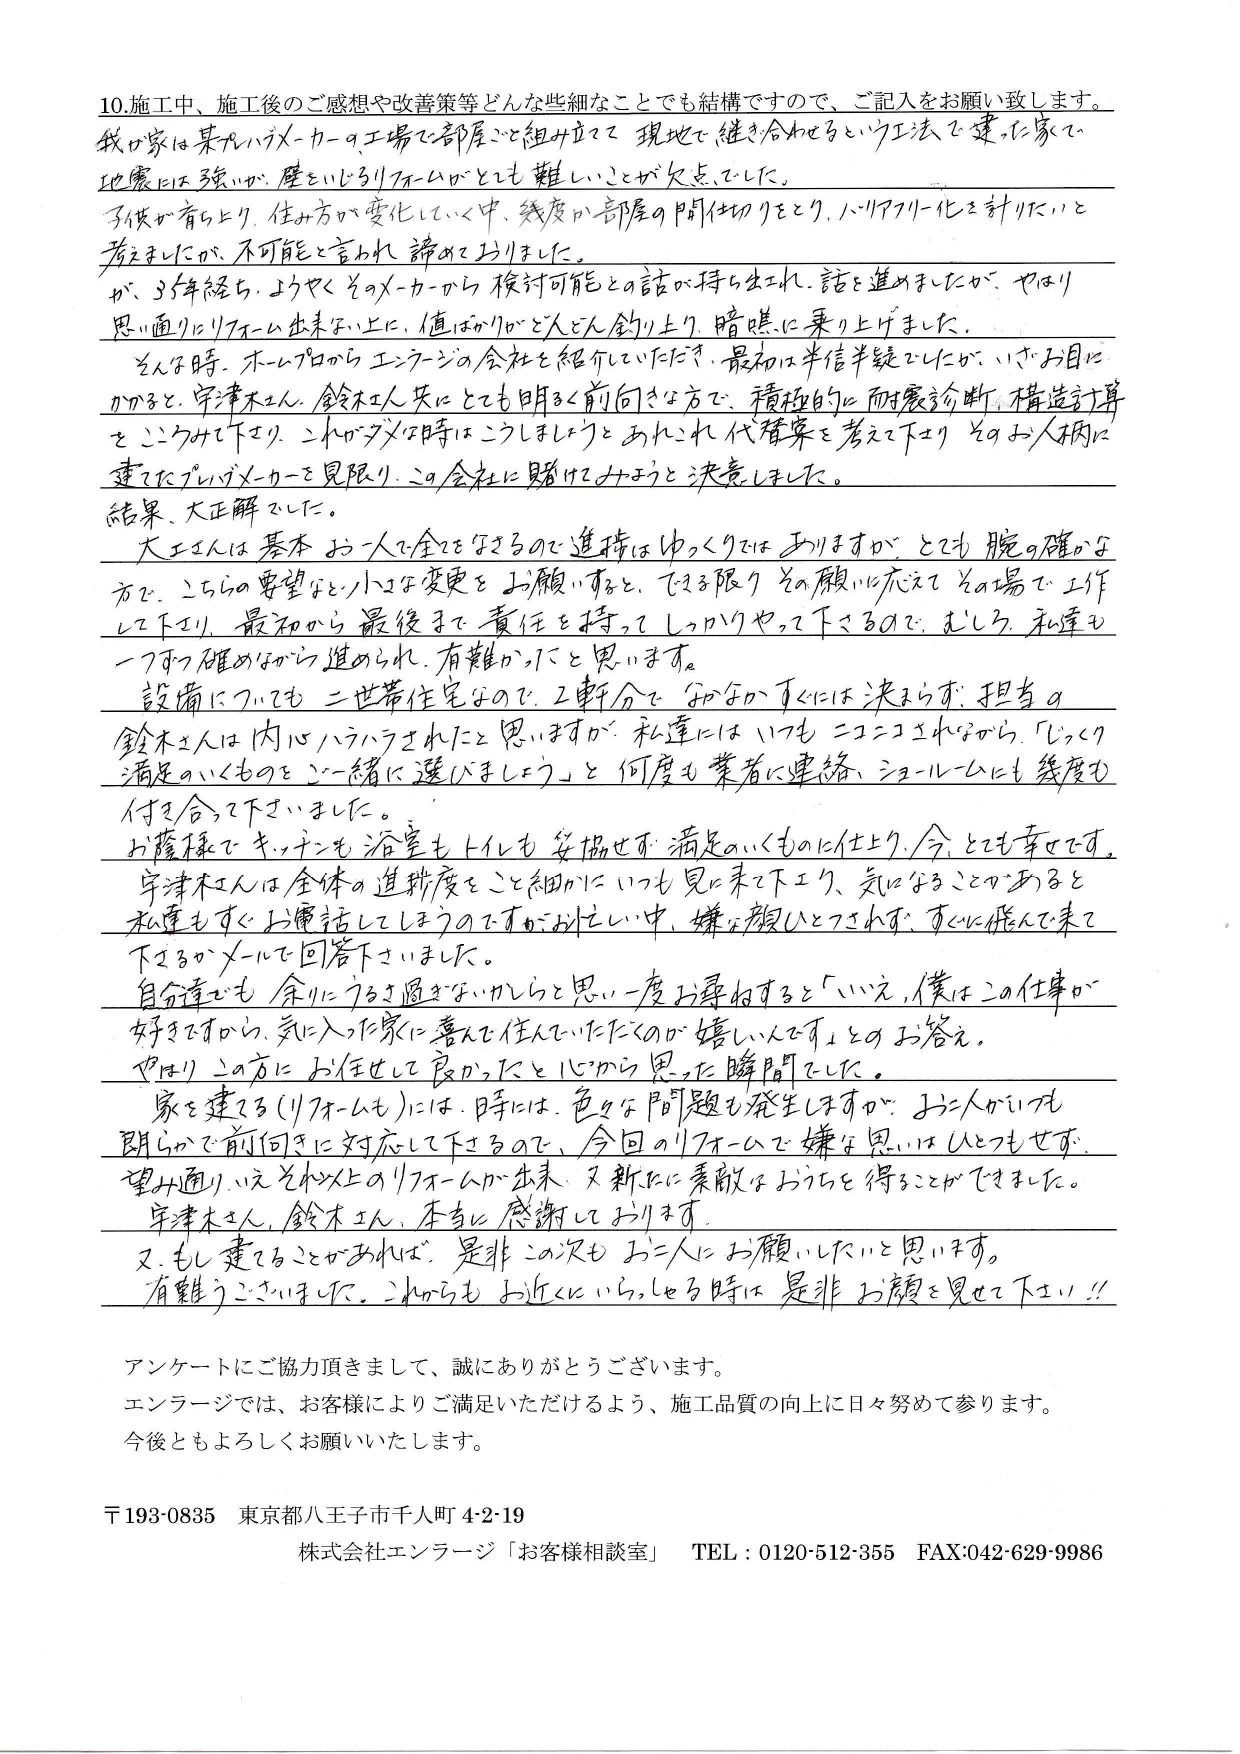 10.施工中、施工後のご感想や改善策等どんな些細なことでも結構ですので、ご記入をお願い致します。
我が家は某プレハブメーカーの工場で部屋ごと組み立てて 現地で継ぎ合わせるという工法で建った家で
地震には強いが、壁をいじるリフォームがとても難しいことが欠点、でした。
子供が育ち上り、住み方が変化していく中、幾度か部屋の間仕切りをとり、バリアフリー化を計りたいと
考えましたが、不可能と言われ 諦めておりました。
が、35年経ち、ようやくそのメーカーから 検討可能との話が持ち出され、話を進めましたが、やはり
思い通りにリフォーム出来ない上に、値ばかりがどんどん釣り上り、暗礁に乗り上げました。
そんな時、ホームプロから エンラージの会社を紹介していただき、最初は半信半疑でしたが、いざお目に
かかると、宇津木さん、鈴木さん共に とても明るく前向きな方で、積極的に 耐震診断、構造計算
を こころみて下さり、これがダメな時はこうしましょうと あれこれ 代替案を考えて下さり そのお人柄に
建てたプレハブメーカーを見限り、この会社に賭けてみようと決意しました。
結果、大正解でした。
大工さんは 基本 お一人で全てをなさるので 進捗はゆっくりでは ありますが、とても 腕の確かな
方で、こちらの要望など小さな変更を お願いすると、できる限り その願いに応えて その場で工作
して下さり、最初から最後まで 責任を持って しっかりやって下さるので、むしろ、私達も
一つずつ確めながら進められ、有難かったと思います。
設備についても 二世帯住宅なので、2軒分で なかなかすぐには決まらず、担当の
鈴木さんは内心ハラハラされたと思いますが、私達にはいつも ニコニコされながら、「じっくり
満足のいくものを ご一緒に選びましょう」と 何度も業者に連絡、ショールームにも幾度も
付き合って下さいました。
お蔭様で キッチンも 浴室もトイレも 妥協せず 満足のいくものに仕上り、今、とても幸せです。
宇津木さんは全体の進捗度をこと細かにいつも見に来て下さり、気になることがあると
私達もすぐお電話してしまうのですが、お忙しい中、嫌な顔ひとつされず、すぐに飛んで来て
下さるかメールで回答下さいました。
自分達でも 余りにうるさ過ぎないかしらと思い一度お尋ねすると「いいえ、僕はこの仕事が
好きですから、気に入った家に喜んで住んでいただくのが嬉しいんです」とのお答え。
やはり この方に お任せして良かったと心から思った瞬間でした。
家を建てる(リフォームも)には、時には、色々な問題も発生しますが、お二人がいつも
朗らかで前向きに対応して下さるので、今回のリフォームで嫌な思いはひとつもせず、
望み通り、いえそれ以上のリフォームが出来、又新たに素敵なおうちを得ることができました。
宇津木さん、鈴木さん、本当に感謝しております。
又、もし建てることがあれば、是非この次も お二人にお願いしたいと思います。
有難うございました。これからも お近くにいらっしゃる時は 是非 お顔を見せて下さい!!
アンケートにご協力頂きまして、誠にありがとうございます。
エンラージでは、お客様によりご満足いただけるよう、施工品質の向上に日々努めて参ります。
今後ともよろしくお願いいたします。
〒193-0835 東京都八王子市千人町 4-2-19
株式会社エンラージ「お客様相談室」 TEL：0120-512-355 FAX:042-629-9986